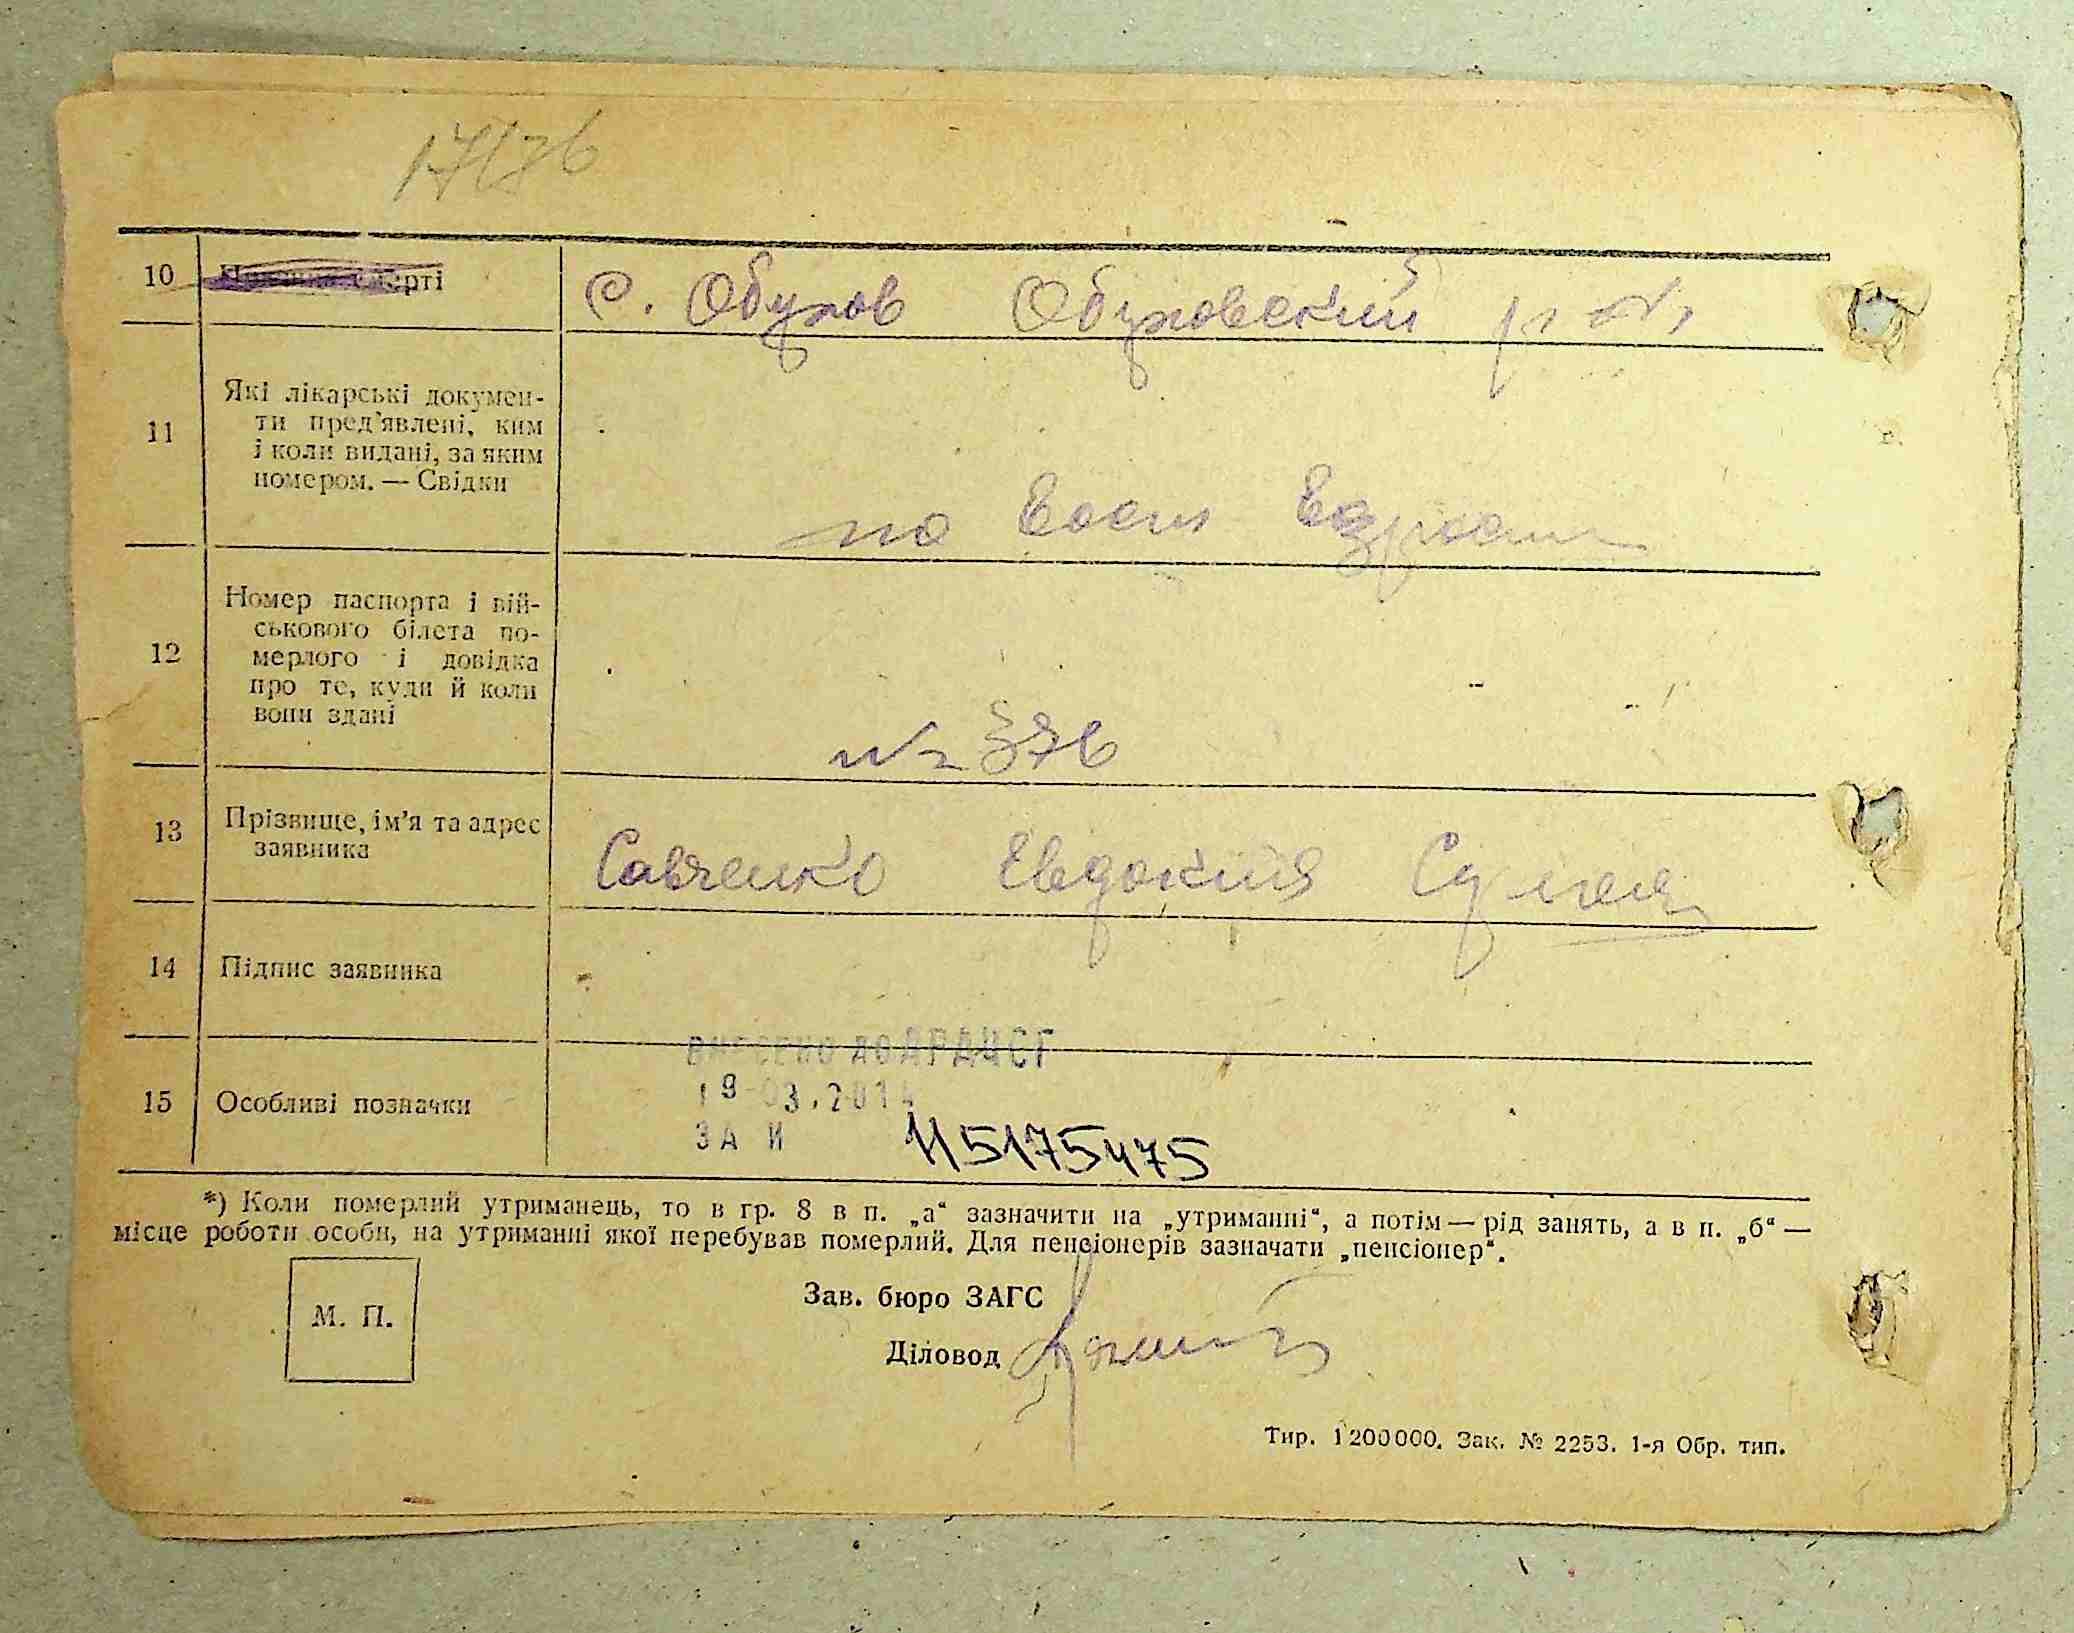 10
смерті
с. Обухов Обуховский р-н,
11
Які лікарські докумен-
ти пред'явлені, ким
і коли видані, за яким
номером. — Свідки
по
12
Номер паспорта і вій-
ськового білета по-
мерлого і довідка
про те, куди й коли
вони здані
№ 376
13
Прізвище, ім'я та адрес
заявника
Савченко Евдокия
14
Підпис заявника
15
Особливі позначки
ВНЕСЕНО ДО ДРАЦСГ
19 03.2014
ЗА N 115175475
*) Коли померлий утриманець, то в гр. 8 в п. „а“ зазначити на „утриманні“, а потім — рід занять, а в п. „б“ —
місце роботи особи, на утриманні якої перебував померлий. Для пенсіонерів зазначати „пенсіонер“.
М. П.
Зав. бюро ЗАГС
Діловод
Тир. 1200000. Зак. № 2253. 1-я Обр. тип.